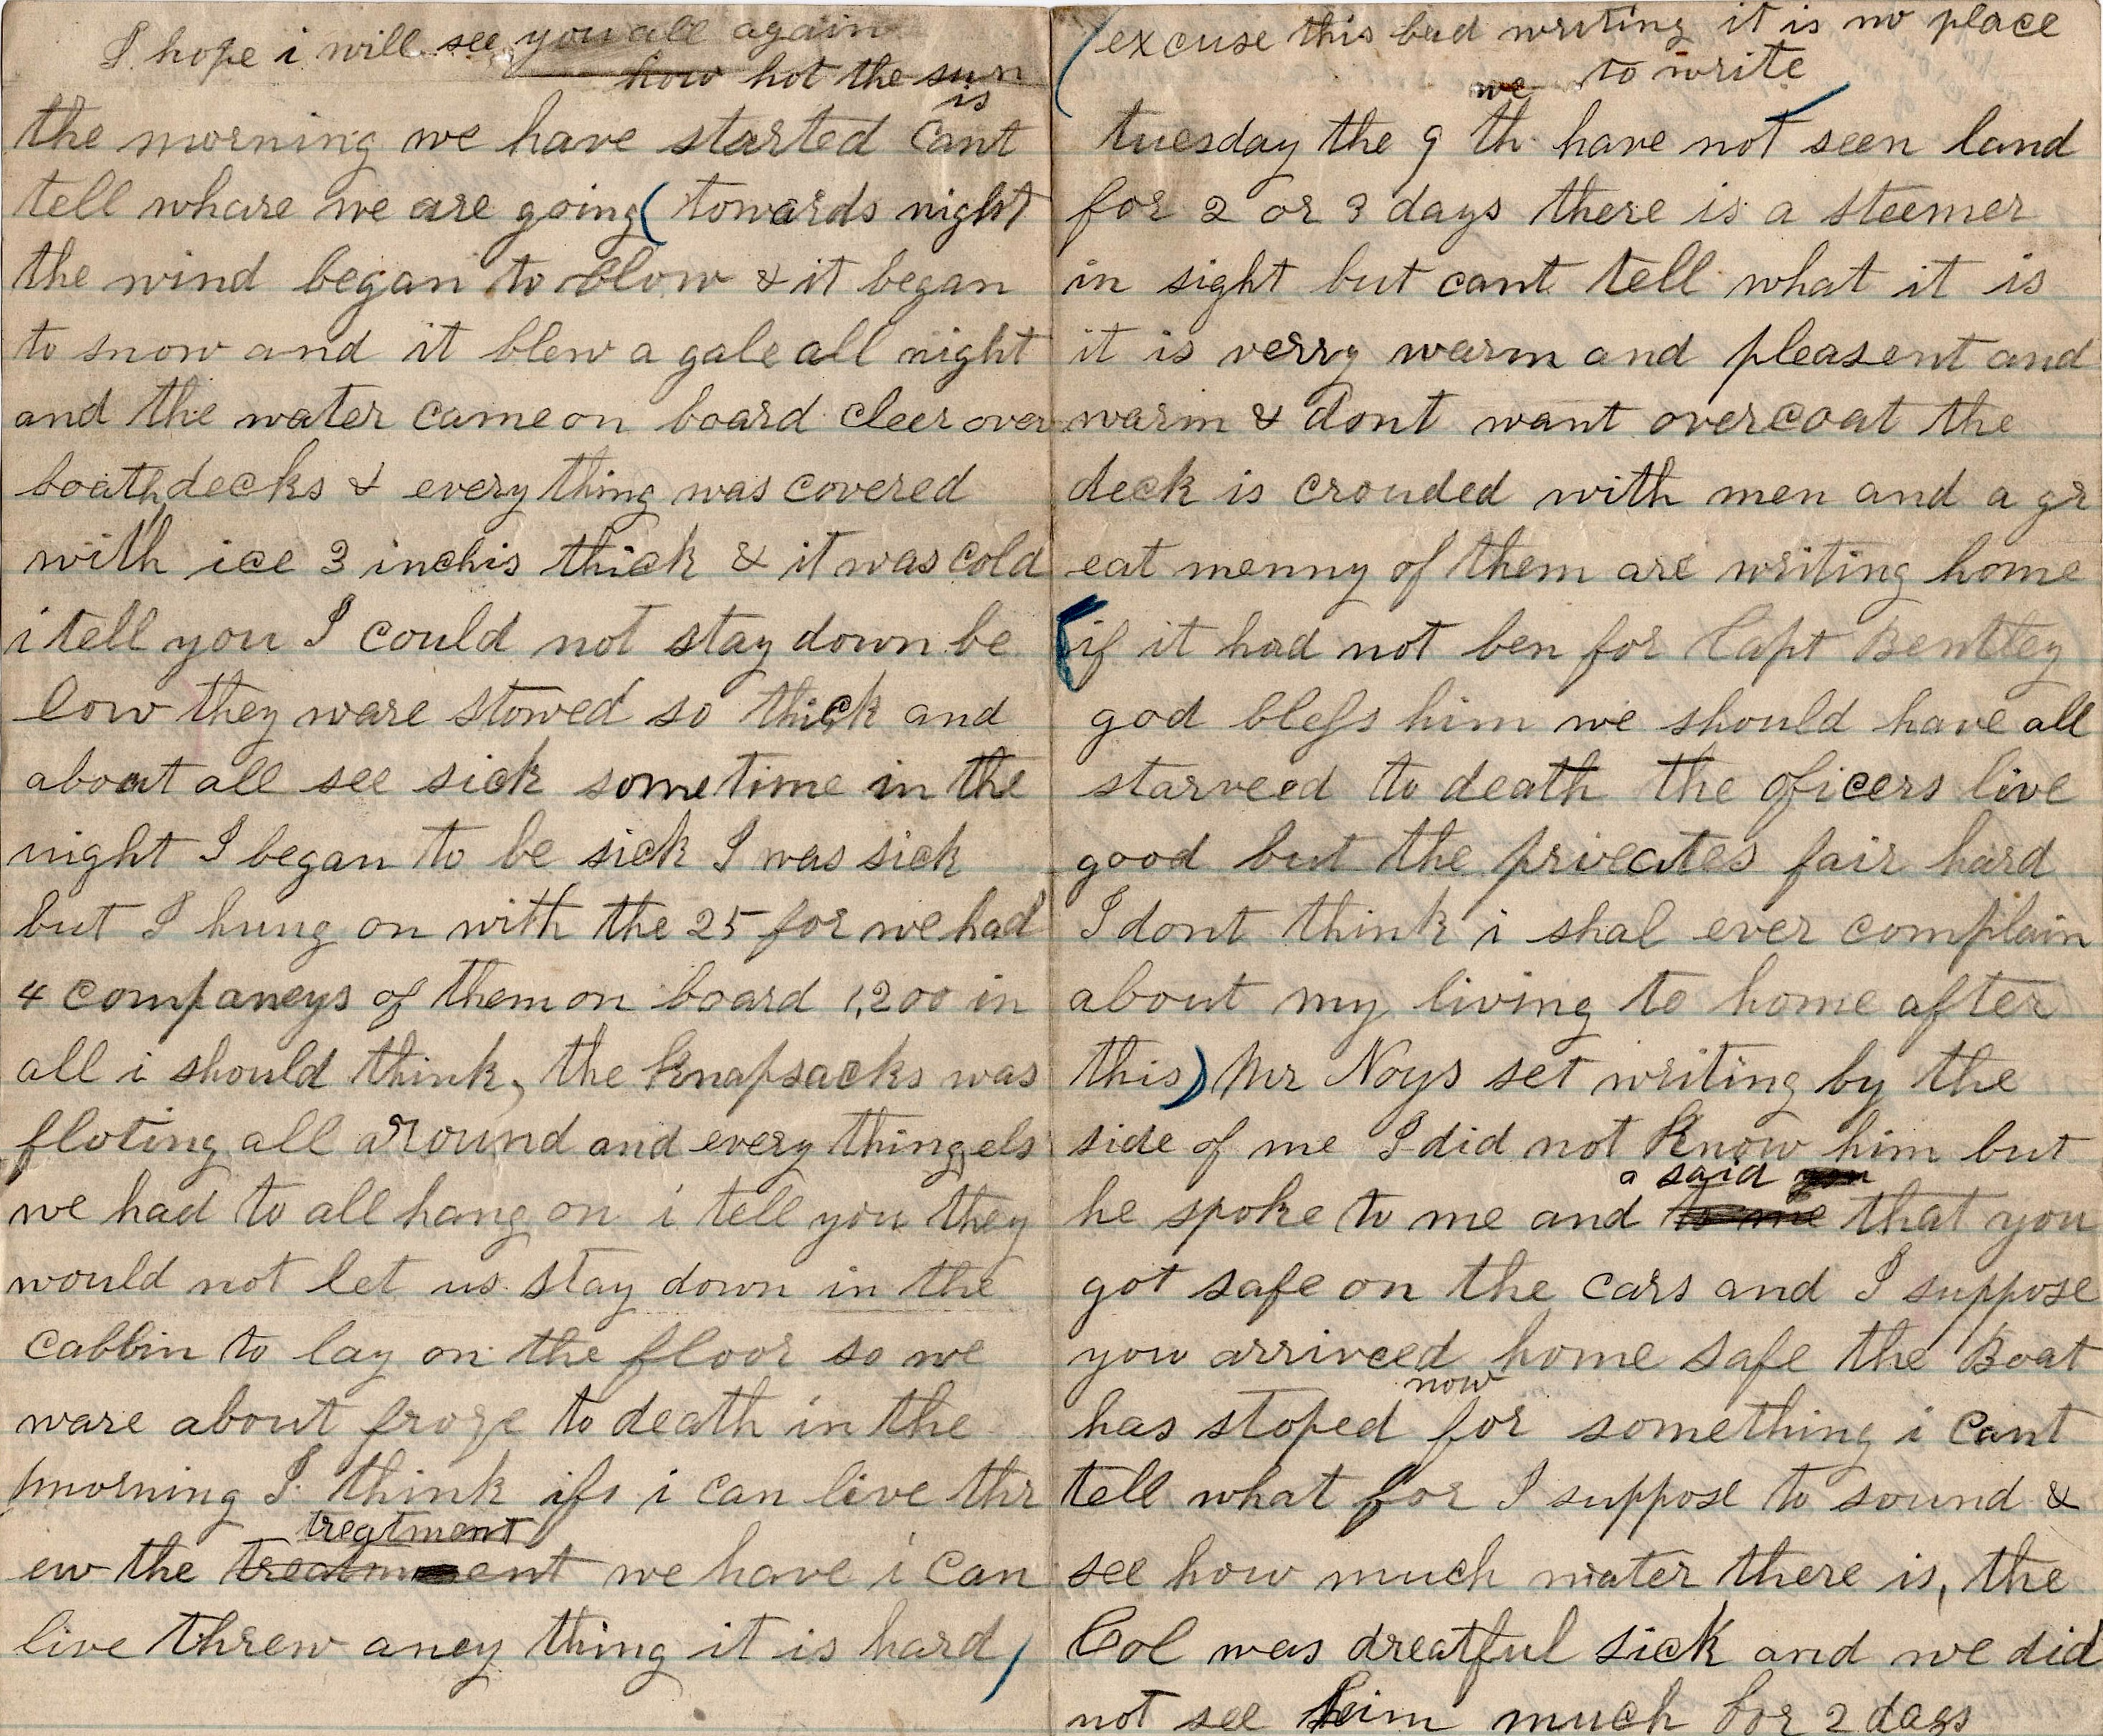 I hope i will see you all again
how hot the sun
is
the morning we have started cant
tell whare we are going (towards night
the wind began to blow & it began
to snow and it blew a gale all night
and the water came on board cleer over
boath decks & every thing was covered
with ice 3 inchis thick & it was cold
i tell you I could not stay down be
low they ware stowed so thick and
about all see sick sometime in the
night I began to be sick I was sick
but I hung on with the 25 for we had
4 companeys of them on board 1,200 in
all i should think, the knapsacks was
floting all around and every thing els
we had to all hang on i tell you they
would not let us stay down in the
cabbin to lay on the floor so we
ware about froze to death in the
morning I think ifs i can live thr
treatment
ew the treatment we have i can
live threw aney thing it is hard)
(excuse this bad writing it is no place
we to write
tuesday the 9 th have not seen land
for 2 or 3 days there is a steemer
in sight but cant tell what it is
it is verry warm and pleasent and
warm & dont want overcoat the
deck is crouded with men and a gr
eat menny of them are writing home
(if it had not ben for Capt Bentley
god bless him we should have all
starveed to death the oficers live
good but the priveates fair hard
I dont think i shal ever complain
about my living to home after
this) Mr Noys set writing by the
side of me I did not know him but
a said
he spoke to me and to me that you
got safe on the cars and I suppose
you arriveed home safe the Boat
now
has stoped for something i cant
tell what for I suppose to sound &
see how much water there is, the
Col was dreatful sick and we did
not see him much for 2 days